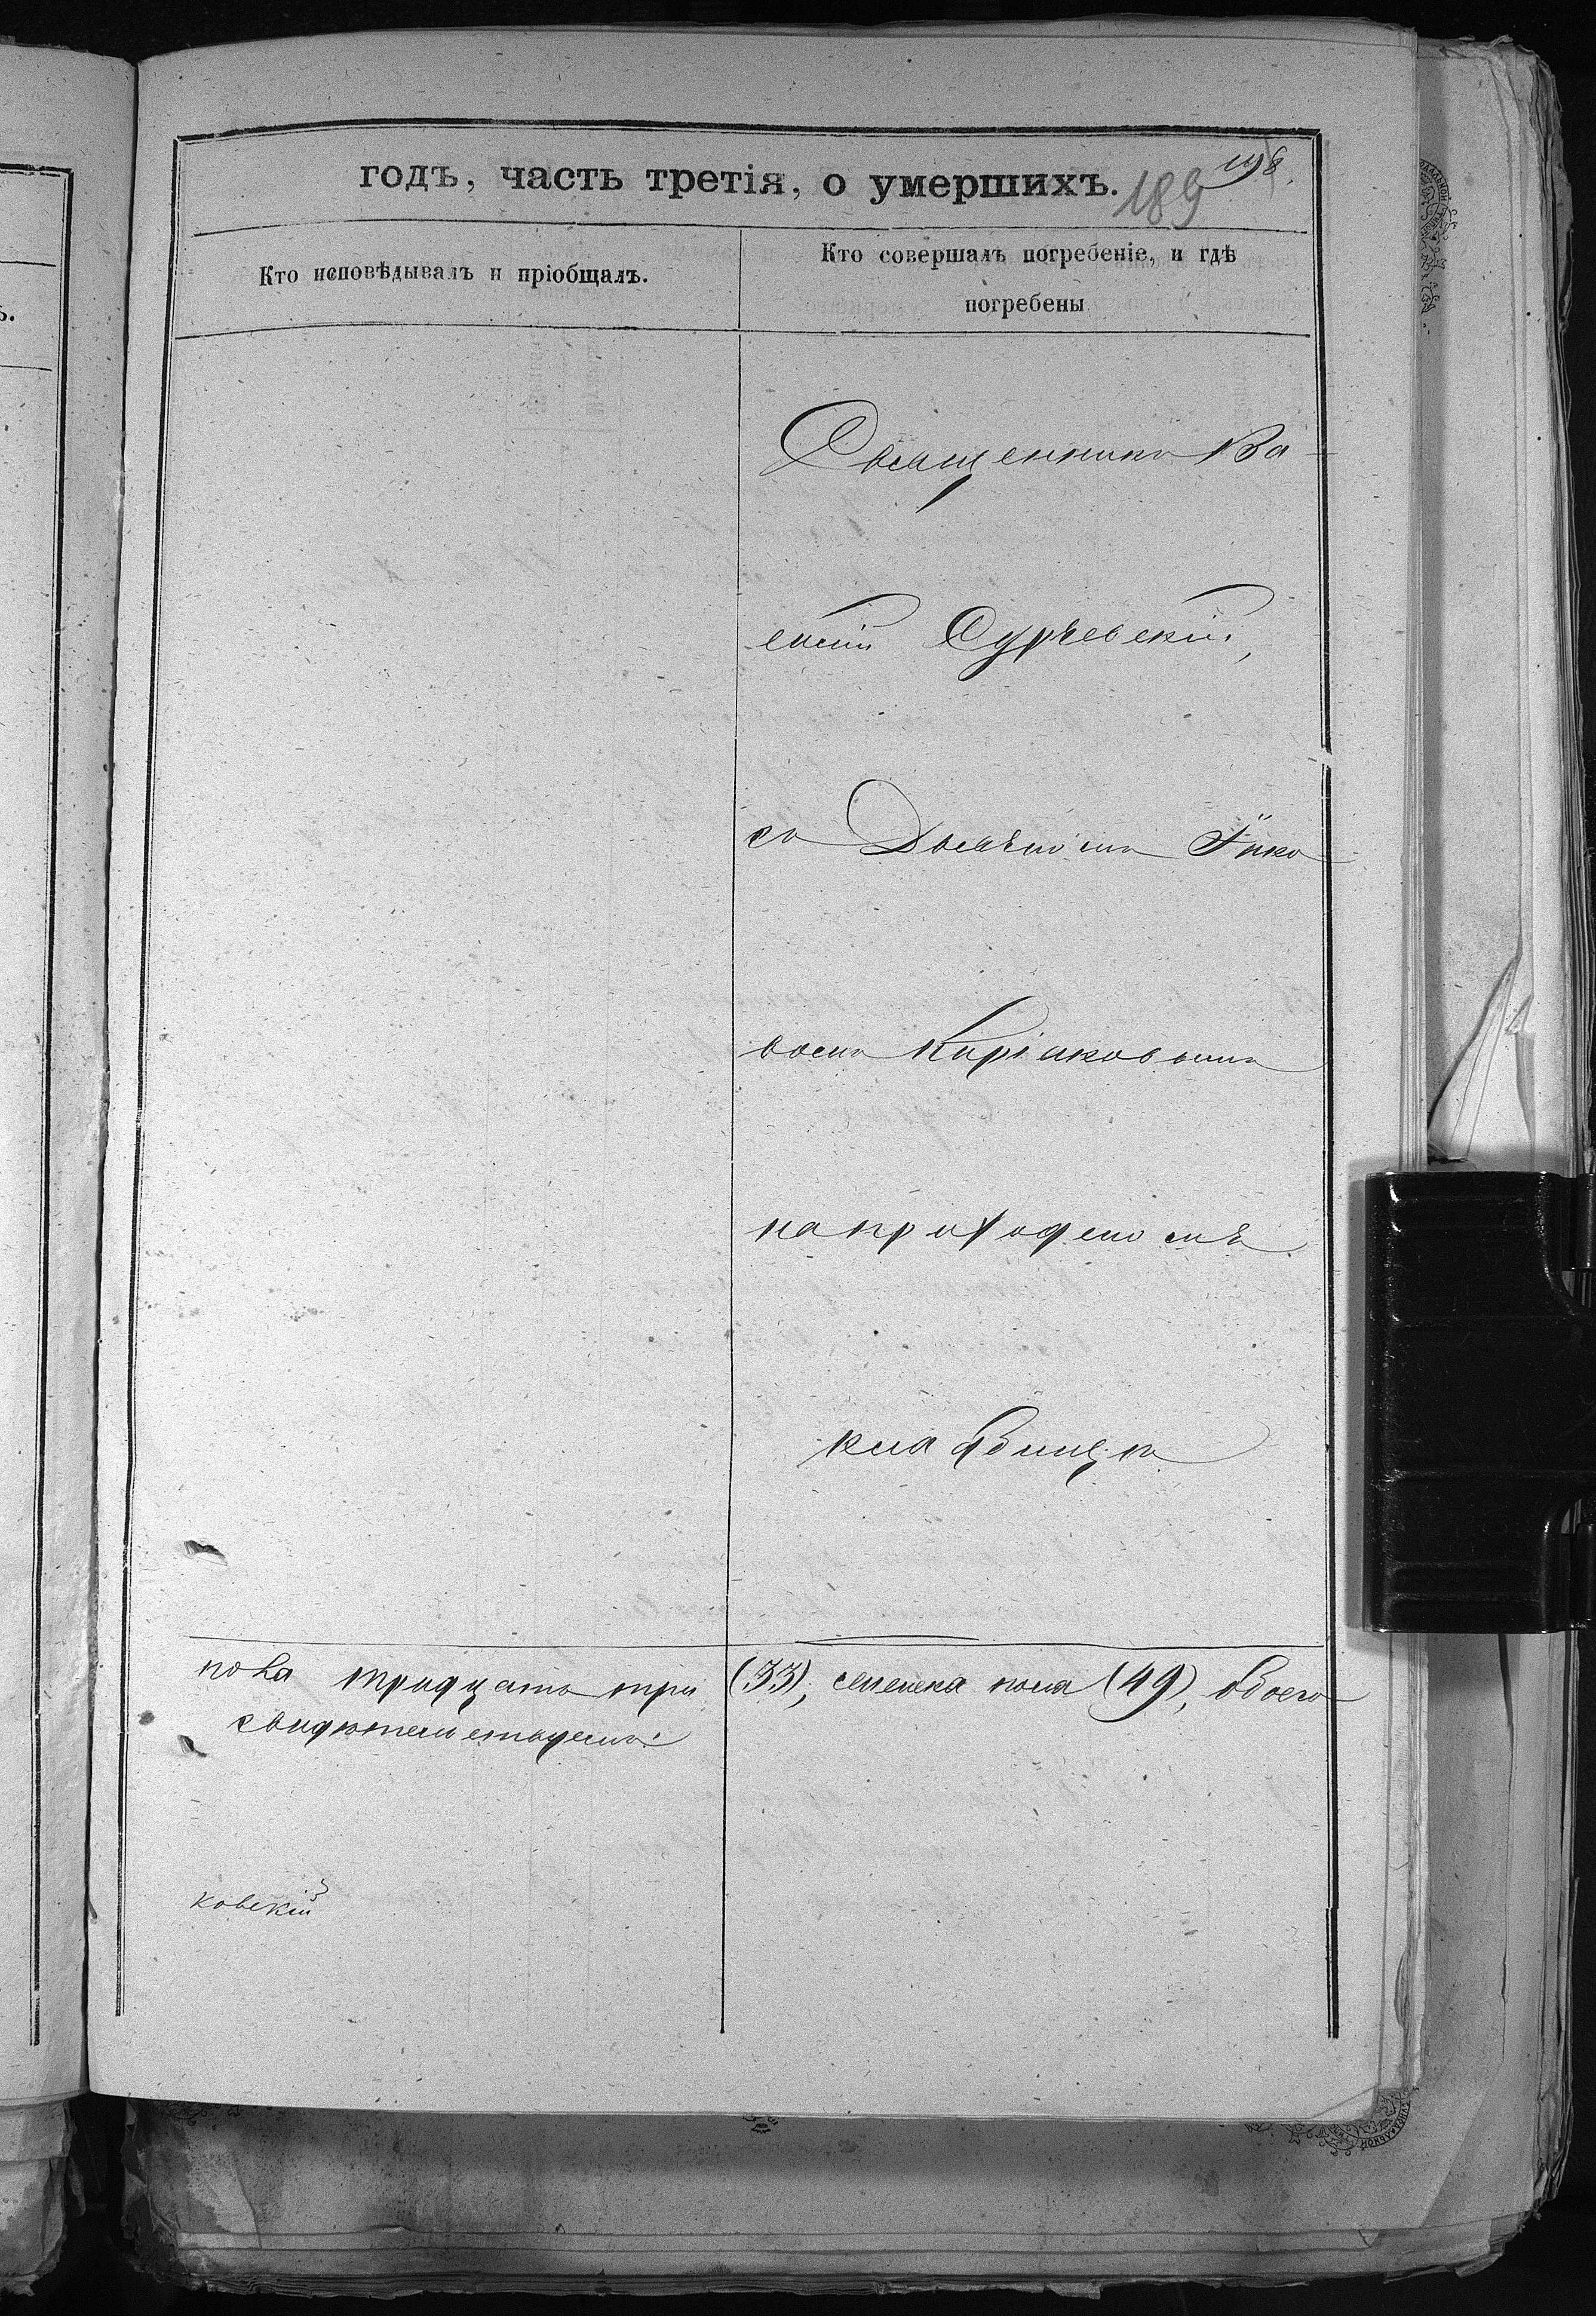 годъ, часть третія, о умершихъ.
189
198.
Кто исповѣдывалъ и пріобщалъ.
Кто совершалъ погребеніе, и гдѣ
погребены
Священникъ Ва-
силій Сурьевскій,
съ Дьячкомъ Яко
вомъ Киріаковымъ
на приходскомъ
кладбищѣ
пола тридцать три (33), женска пола (49), обоего
свидѣтельствуемъ:
ковскій